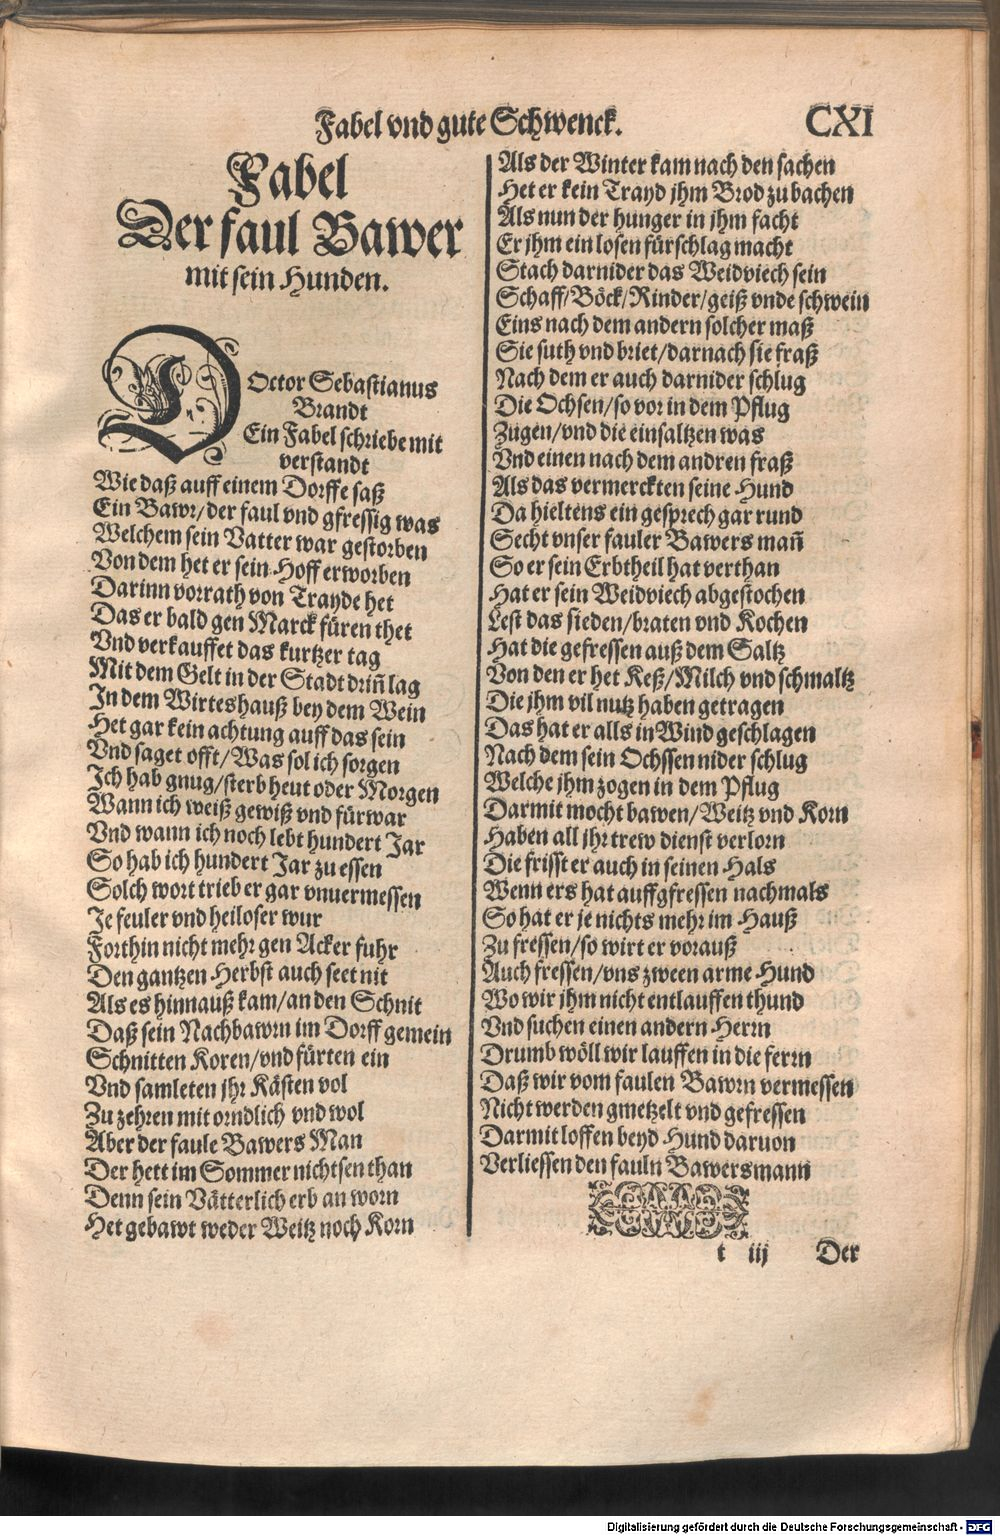 Fabel vnd gute Schwenck. CXI
Fabel
Der faul Bawer
mit sein Hunden.
DOctor Sebastianus
Brandt
Ein Fabel schriebe mit
verstandt
Wie daß auff einem Dorffe saß
Ein Bawr/der faul vnd gfressig was
Welchem sein Vatter war gestorben
Von dem het er sein Hoff erworben
Darinn vorrath von Trayde het
Das er bald gen Marck füren thet
Vnd verkauffet das kurtzer tag
Mit dem Gelt in der Stadt driñ lag
In dem Wirteshauß bey dem Wein
Het gar kein achtung auff das sein
Vnd saget offt/Was sol ich sorgen
Ich hab gnug/sterb heut oder Morgen
Wann ich weiß gewiß vnd fürwar
Vnd wann ich noch lebt hundert Jar
So hab ich hundert Jar zu essen
Solch wort trieb er gar vnuermessen
Je feuler vnd heiloser wur
Forthin nicht mehr gen Acker fuhr
Den gantzen Herbst auch seet nit
Als es hinnauß kam/an den Schnit
Daß sein Nachbawrn im Dorff gemein
Schnitten Koren/vnd fürten ein
Vnd samleten jhr Kästen vol
Zu zehren mit orndlich vnd wol
Aber der faule Bawers Man
Der hett im Sommer nichtsen than
Denn sein Vätterlich erb an worn
Het gebawt weder Weitz noch Korn
Als der Winter kam nach den sachen
Het er kein Trayd jhm Brod zu bachen
Als nun der hunger in jhm facht
Er jhm ein losen fürschlag macht
Stach darnider das Weidviech sein
Schaff/Böck/Rinder/geiß vnde schwein
Eins nach dem andern solcher maß
Sie suth vnd briet/darnach sie fraß
Nach dem er auch darnider schlug
Die Ochsen/so vor in dem Pflug
Zugen/vnd die einsaltzen was
Vnd einen nach dem andren fraß
Als das vermerckten seine Hund
Da hieltens ein gesprech gar rund
Secht vnser fauler Bawers mañ
So er sein Erbtheil hat verthan
Hat er sein Weidviech abgestochen
Lest das sieden/braten vnd Kochen
Hat die gefressen auß dem Saltz
Von den er het Keß/Milch vnd schmaltz
Die jhm vil nutz haben getragen
Das hat er alls in Wind geschlagen
Nach dem sein Ochssen nider schlug
Welche jhm zogen in dem Pflug
Darmit mocht bawen/Weitz vnd Korn
Haben all jhr trew dienst verlorn
Die frisst er auch in seinen Hals
Wenn ers hat auffgfressen nachmals
So hat er je nichts mehr im Hauß
Zu fressen/so wirt er vorauß
Auch fressen/vns zween arme Hund
Wo wir jhm nicht entlauffen thund
Vnd suchen einen andern Herrn
Drumb wöll wir lauffen in die ferrn
Daß wir vom faulen Bawrn vermessen
Nicht werden gmetzelt vnd gefressen
Darmit loffen beyd Hund daruon
Verliessen den fauln Bawersmann
t iij Der
Digitalisierung gefördert durch die Deutsche Forschungsgemeinschaft - DFG